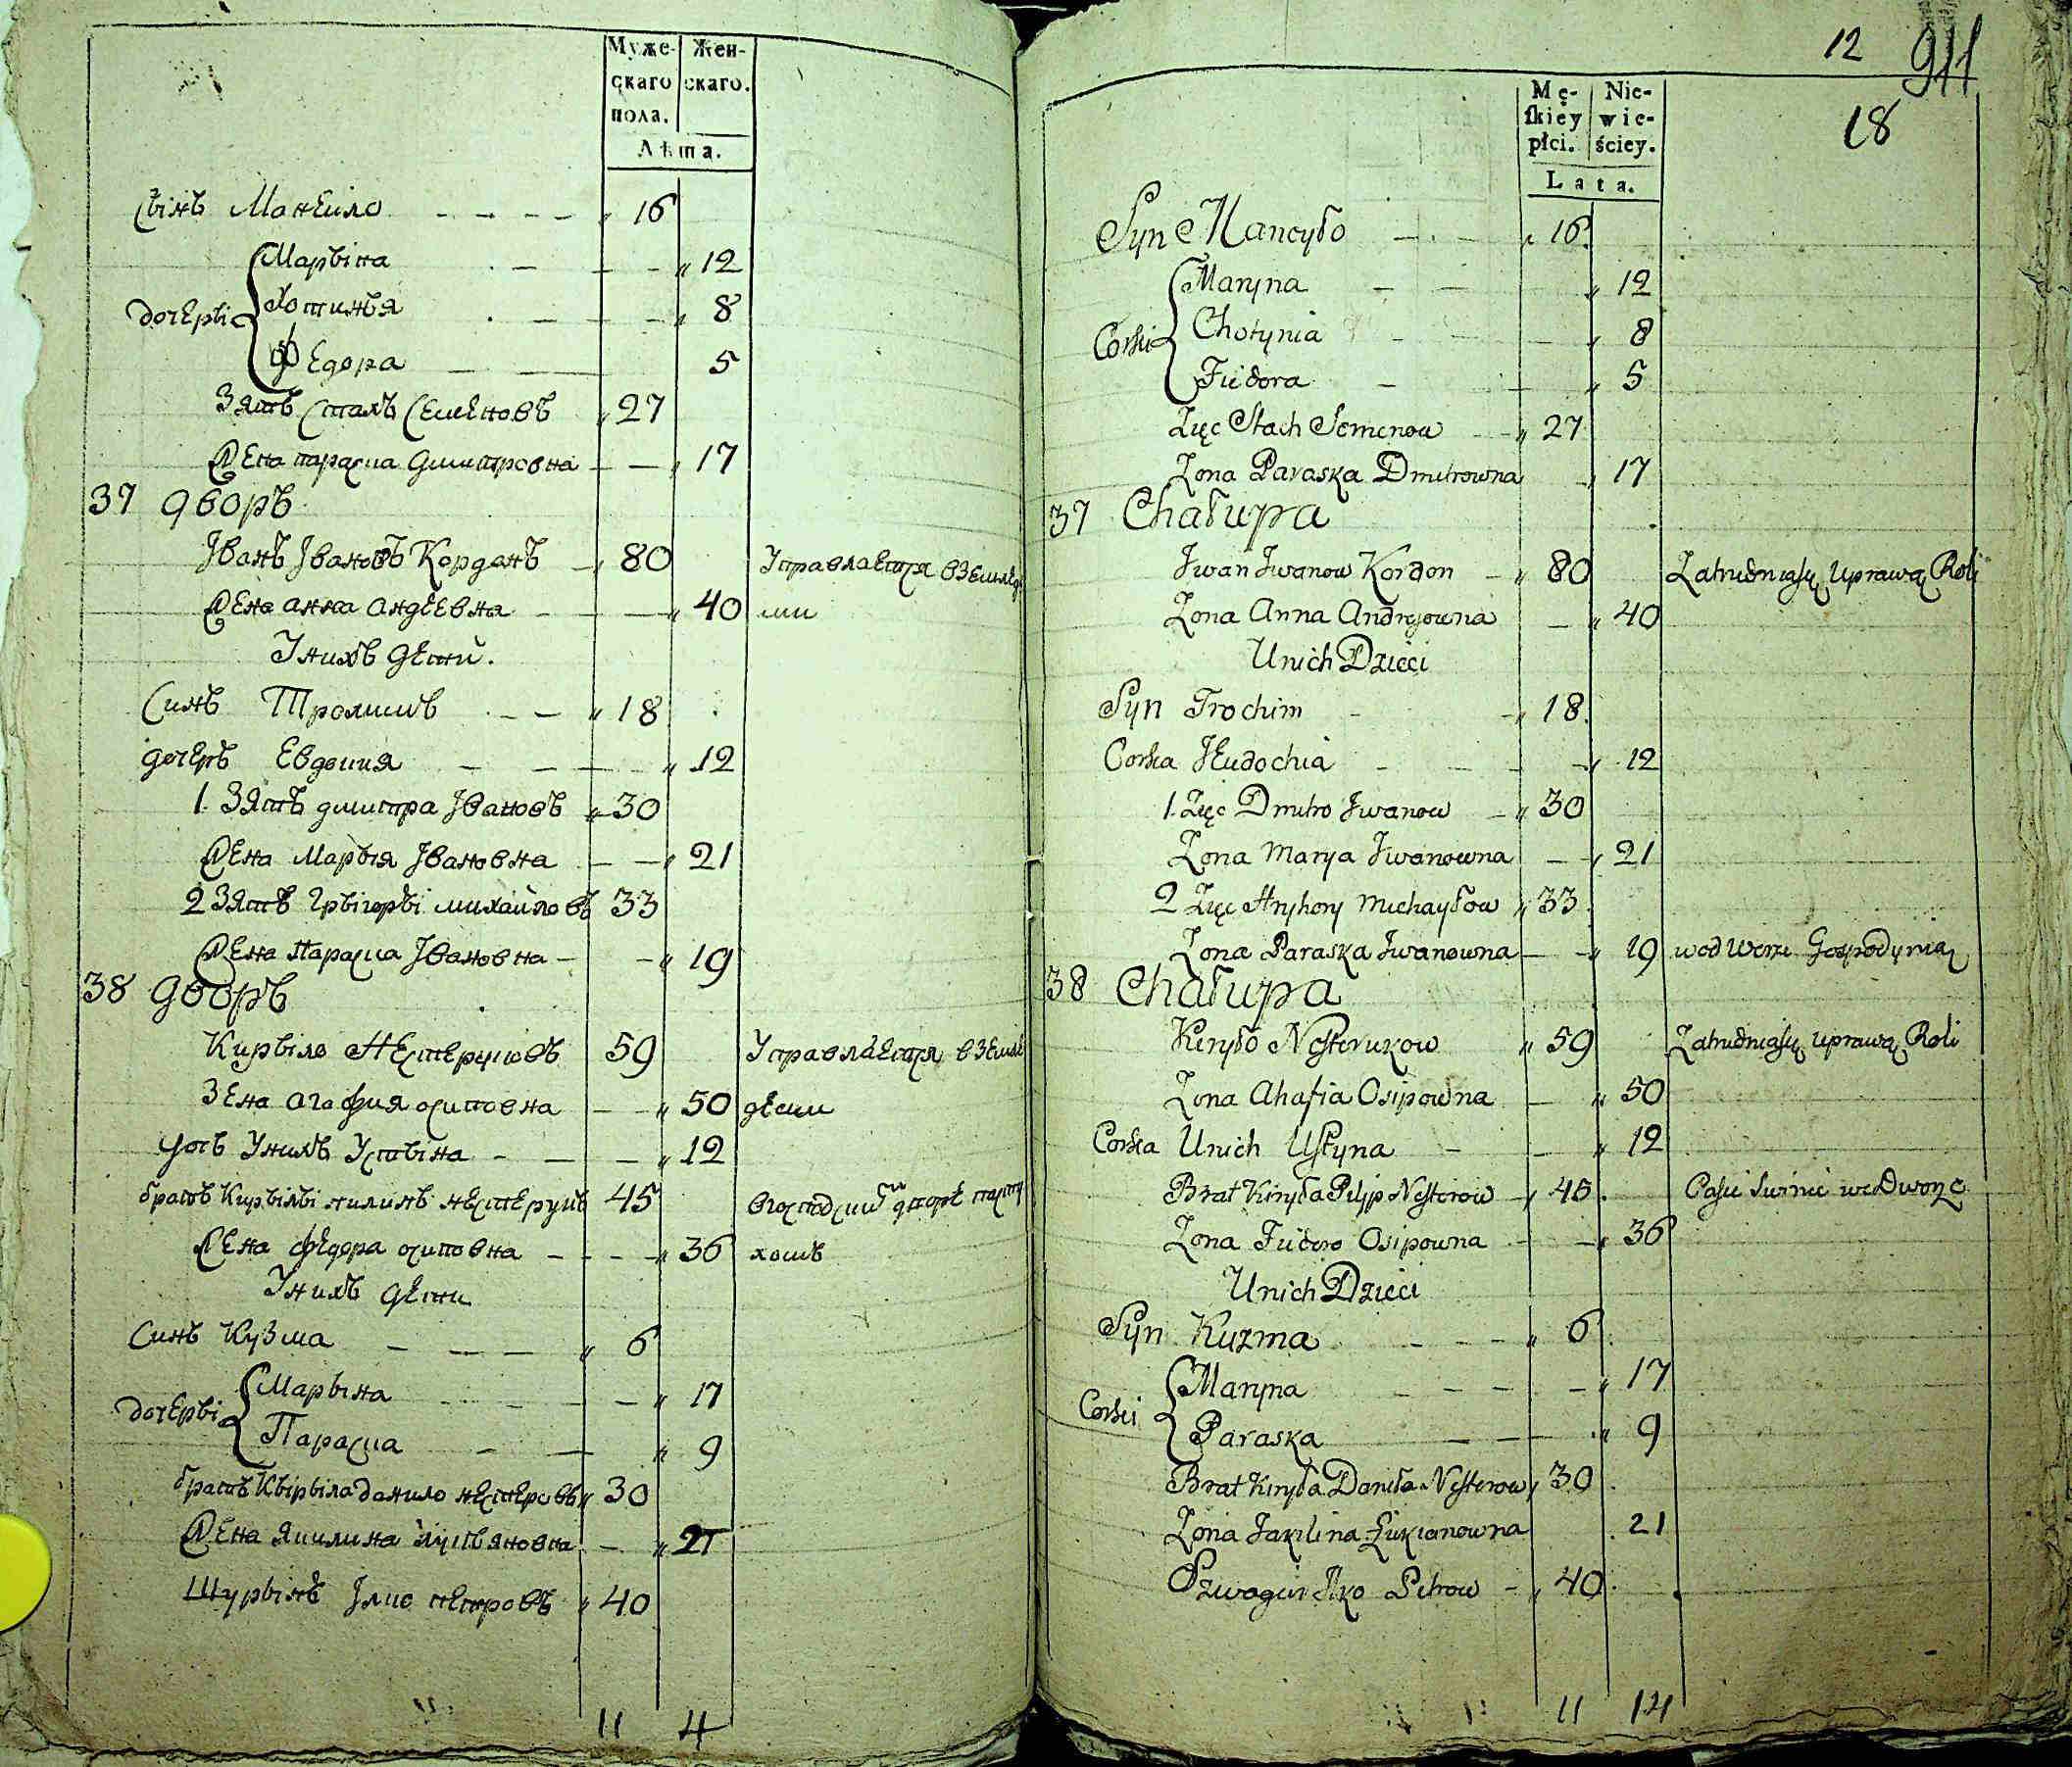 Муже-
скаго
пола.
Жен-
скаго.
Лѣта.
Сынъ Манейло 16
Марьіна 12
дочерьі Хотинья 8
Федора 5
Зять Стахъ Семеновъ 27
Жена параска дмитровна 17
37 дворъ
Іванъ Івановъ Корданъ 80 Управлаетця вземлед
Жена анна андеевна 40 ми
Унихъ дети.
Синъ Трохимъ 18
дочеръ Евдокия 12
1. Зятъ дмитра Івановъ 30
Жена Марья Івановна 21
2 Зятъ Грьігорьі михайловъ 33
Жена Параска Івановна 19
38 дворъ
Кирьіло Нестеруковъ 59 Управлаетця вземле
Зена агафия осиповна 50
доч Унихъ Устьіна 12
братъ Кирьільі пилипъ нестерукъ 45
Жена федора осиповна 36
Унихъ дети
Синъ Кузма 6
дочерьі Марьіна 17
Параска 9
братъ Кьірьіла данило нестеровъ 30
Жена Якилина лукьяновна 21
Шурьінъ Ілко петровъ 40
11 4
12 911
18
Mę-
skiey
płci.
Nie-
wie-
ściey.
Lata.
Syn Manoyło 16
Maryna 12
Corki Chotynia 8
Fiedora 5
Zięc Stach Semenow 27
Zona Paraska Dmitrowna 17
37 Chałupa
Iwan Iwanow Kordon 80 Zatrudniaſię Uprawą Roli
Zona Anna Andrejowna 40
Unich Dzieci
Syn Trochim 18
Corka Jeudochia 12
1. Zięc Dmitro Iwanow 30
Zona Marya Iwanowna 21
2 Zięc Hryhory Michayłow 33
Zona Paraska Iwanowna 19 wedworze Gospodynią
38 Chałupa
Kiryło Nesterukow 59 Zatrudniaſię uprawą Roli
Zona Ahafia Osipowna 50
Corka Unich Ustyna 12
Brat Kiryła Pilip Nesterow 45 Pasie Swinie weDworze
Zona Fiedora Osipowna 36
Unich Dzieci
Syn Kuzma 6
Corki Maryna 17
Paraska 9
Brat Kiryła Daniła Nesterow 30
Zona Jakilina Łukianowna 21
Szwagier Ilko Petrow 40
11 14